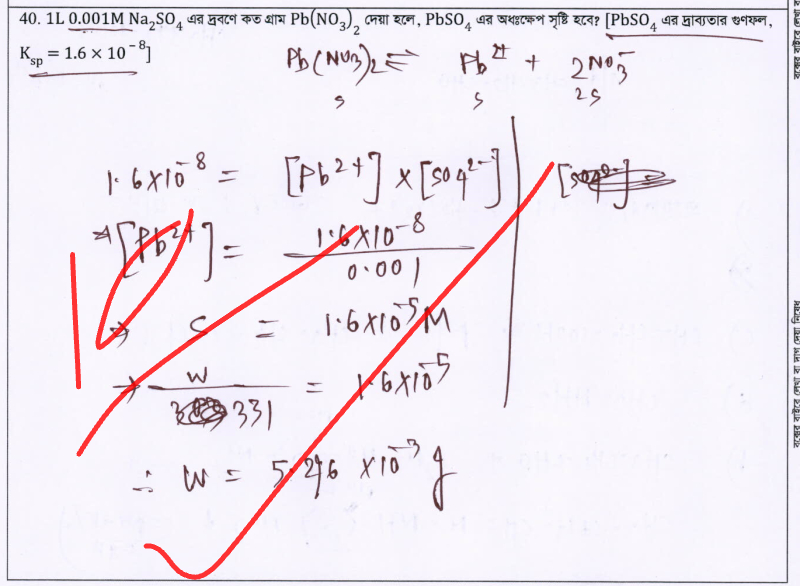 40. 1L 0.001M Na₂SO₄ এর দ্রবণে কত গ্রাম Pb(NO₃)₂ দেয়া হলে, PbSO₄ এর অধঃক্ষেপ সৃষ্টি হবে? [PbSO₄ এর দ্রাব্যতার গুণফল,
K_sp = 1.6 × 10⁻⁸]
Pb(NO₃)₂ ⇌ Pb²⁺ + 2NO₃⁻
s s 2s
1.6×10⁻⁸ = [Pb²⁺] × [SO₄²⁻]
⇒ [Pb²⁺] = 1.6×10⁻⁸ / 0.001
⇒ S = 1.6×10⁻⁵ M
⇒ w / 331 = 1.6×10⁻⁵
∴ W = 5.296 ×10⁻³ g